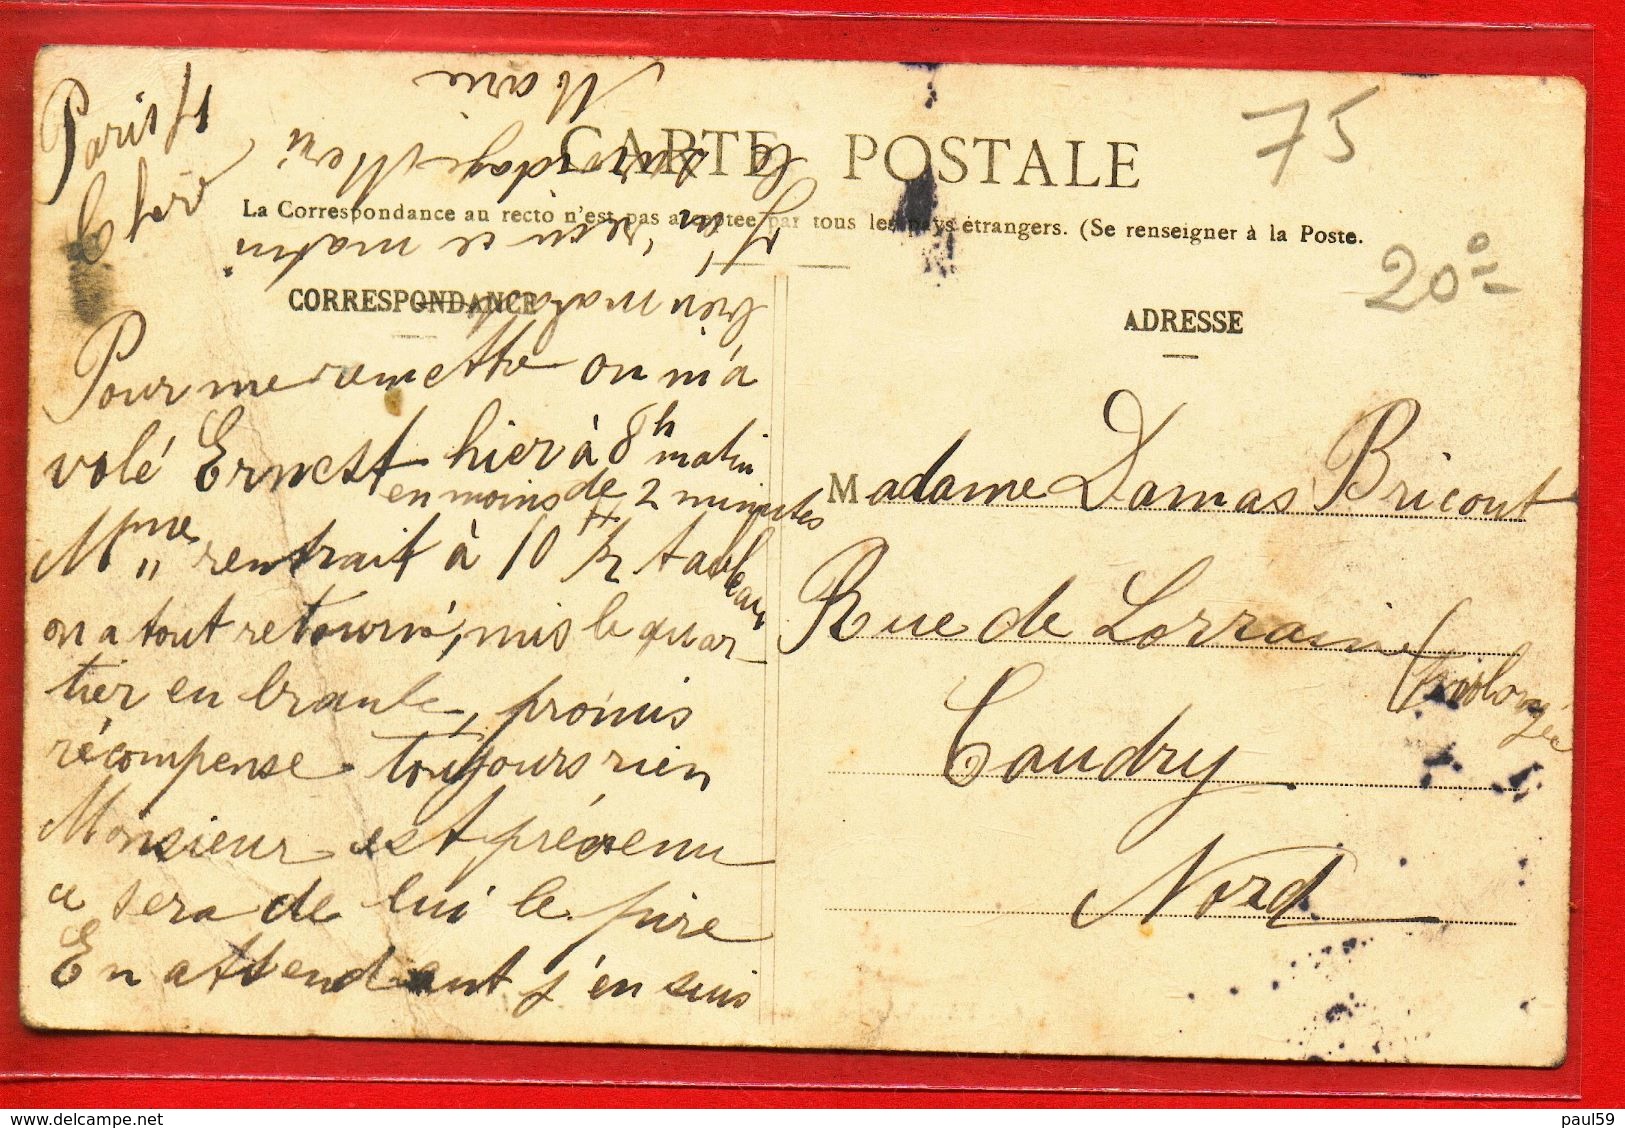 Paris
Chère
CARTE POSTALE
La Correspondance au recto n'est pas acceptée par tous les pays étrangers. (Se renseigner à la Poste.
75
20
CORRESPONDANCE
ADRESSE
Pour me remettre on m'a
volé Ernest hier à 8h matin
en moins de 2 minutes
Mme rentrait à 10 1/2 tableau
on a tout retourné, mis le quar-
tier en branle, promis
récompense toujours rien
Monsieur est prévenu
ce sera de lui le pire
En attendant j'en suis
bien malade
J'ai reçu ce matin
le Merci
Marie
Madame Damas Bricout
Rue de Lorraine (prolongée
Caudry
Nord
paul59